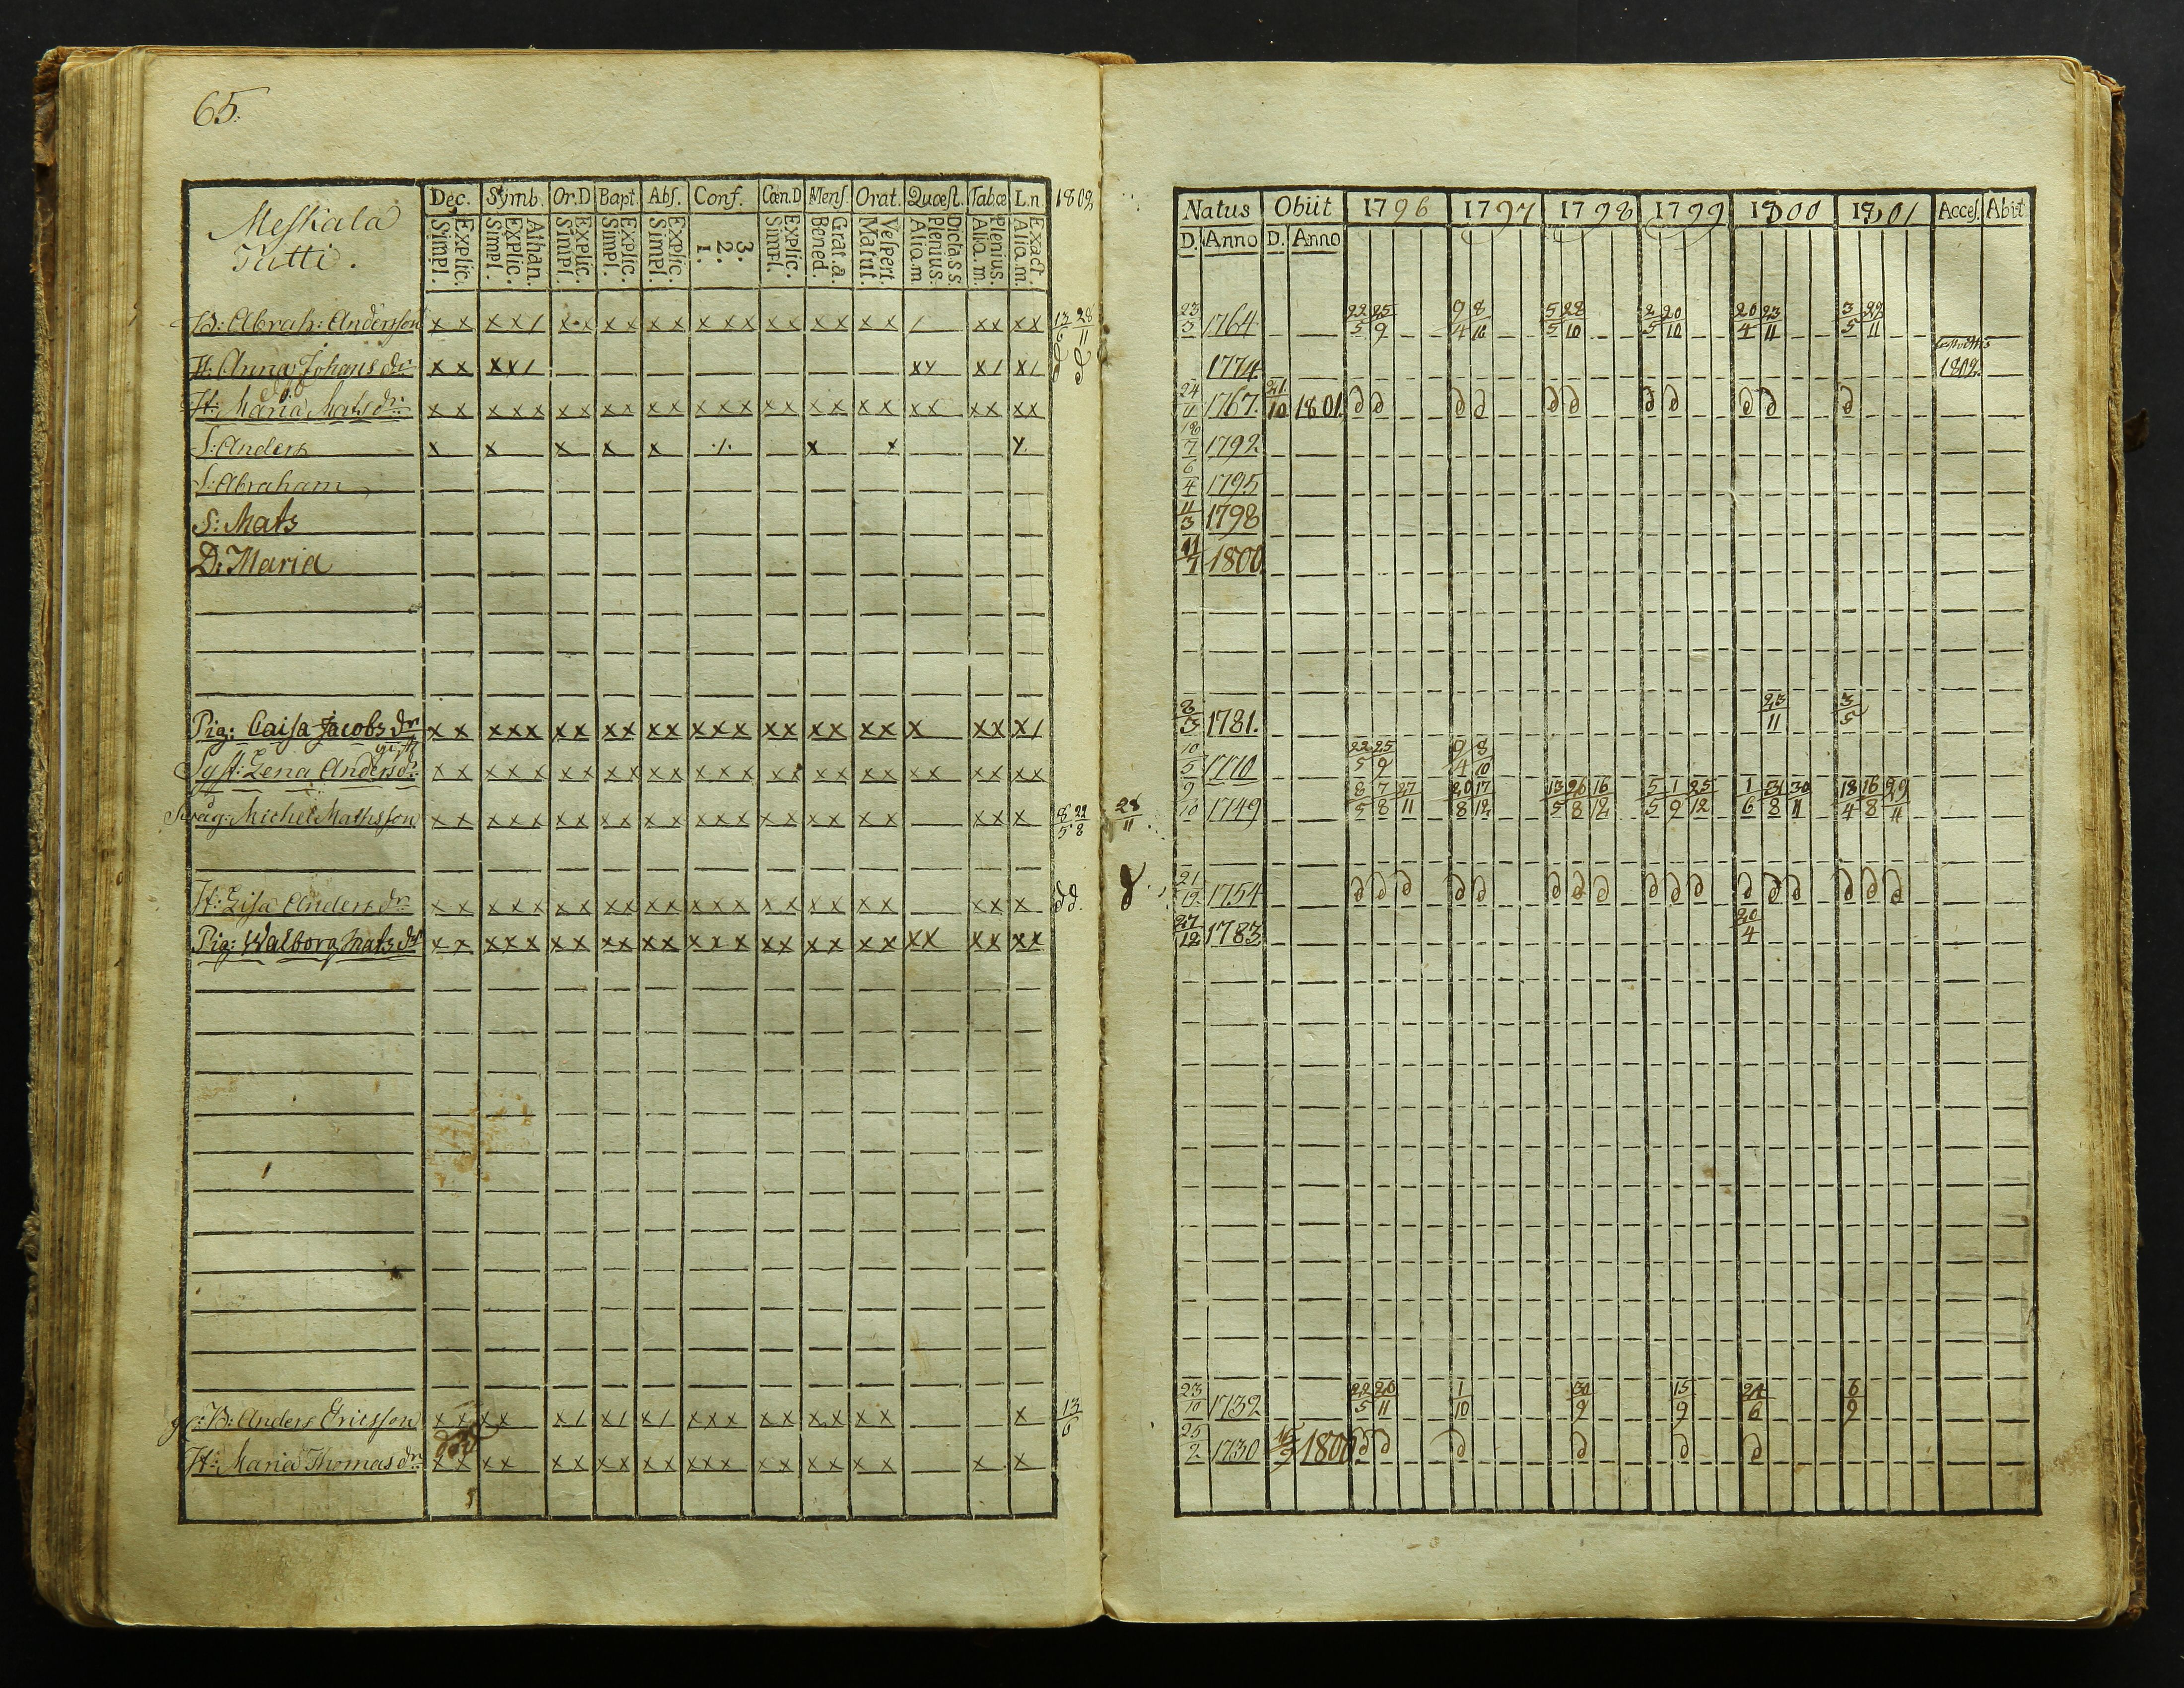 65.
Meskala
Tutti.
Dec. Symb. Or.D Bapt. Abs. Conf. Cœn.D Mens. Orat. Quæst. Tabœ L.n 1802
Simpl. Explic. Simpl. Explic. Athan. Simpl. Explic. Simpl. Explic. Simpl. Explic. 1. 2. 3. Simpl. Explic. Bened. Grat.a. Matut. Vespert. Alio.m Plenius. Dictas s. Alio.m. Plenius. Alio.m. Exact.
B: Abrah: Andersson x x x x / x x x x x x x x x x x x x x x / x x x x 13/6 28/11
H: Anna Johans dr x x x x / x y x / x / d d
död
H: Maria Mats dr: x x x x x x x x x x x x x x x x x x x x x x x x x
S: Anders x x x x x ./. x x y.
S: Abraham
S: Mats
D: Maria
Pig: Caisa Jacobs dr x x x x x x x x x x x x x x x x x x x x x x x /
gift
Syst: Lena Anders dr: x x x x x x x x x x x x x x x x x x x x x x x x x
Svåg: Michel Mathsson x x x x x x x x x x x x x x x x x x x x x x x 8/5 22/8 28/11
H: Lisa Anders dr x x x x x x x x x x x x x x x x x x x x x x x d d. d
Pig: Walborg Mats dr x x x x x x x x x x x x x x x x x x x x x x x x x
gr: B: Anders Ericsson x x x x x / x / x / x x x x x x x x x x 13/6
död
H: Maria Thomas dr: x x x x x x x x x x x x x x x x x x x x x
Natus Obiit 1796 1797 1798 1799 1800 1801 Acces. Abit
D. Anno D. Anno
23/3 1764 22/5 25/9 9/4 8/10 5/5 28/10 2/5 20/10 20/4 23/11 3/5 22/11
1774 1802.
24/11 1767. 21/10 1801 d d d d d d d d d d d
18/7 1792.
6/4 1795
11/3 1798
11/1 1800
8/3 1781. 23/11 3/5
10/5 1770 22/5 25/9 9/4 8/10
9/10 1749 8/5 7/8 27/11 20/8 17/12 13/5 26/8 16/12 5/5 1/9 25/12 1/6 31/8 30/11 18/4 16/8 29/11
21/12 1754 d d d d d d d d d d d d d d d d d
27/12 1783 20/4
23/10 1732 22/5 20/11 1/10 30/9 15/9 24/6 6/9
25/2 1730 1800. d d d d d d